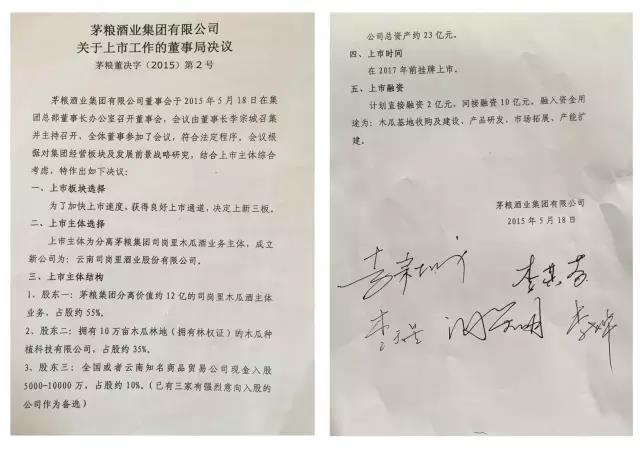 茅粮酒业集团有限公司
关于上市工作的董事局决议
茅粮董决字（2015）第 2 号
茅粮酒业集团有限公司董事会于 2015 年 5 月 18 日在集
团总部董事长办公室召开董事会，会议由董事长李宗城召集
并主持召开，全体董事参加了会议，符合法定程序。会议根
据对集团经营板块及发展前景战略研究，结合上市主体综合
考虑，特作出如下决议：
一、上市板块选择
为了加快上市速度，获得良好上市通道，决定上新三板。
二、上市主体选择
上市主体为分离茅粮集团司岗里木瓜酒业务主体，成立
新公司为：云南司岗里酒业股份有限公司。
三、上市主体结构
1、股东一：茅粮集团分离价值约 12 亿的司岗里木瓜酒主体
业务，占股约 55%。
2、股东二：拥有 10 万亩木瓜林地（拥有林权证）的木瓜种
植科技有限公司，占股约 35%。
3、股东三：全国或者云南知名商品贸易公司现金入股
5000-10000 万，占股约 10%。（已有三家有强烈意向入股的
公司作为备选）
公司总资产约 23 亿元。
四、上市时间
在 2017 年前挂牌上市。
五、上市融资
计划直接融资 2 亿元，间接融资 10 亿元。融入资金用
途为：木瓜基地收购及建设、产品研发、市场拓展、产能扩
建。
茅粮酒业集团有限公司
2015 年 5 月 18 日
李宗城